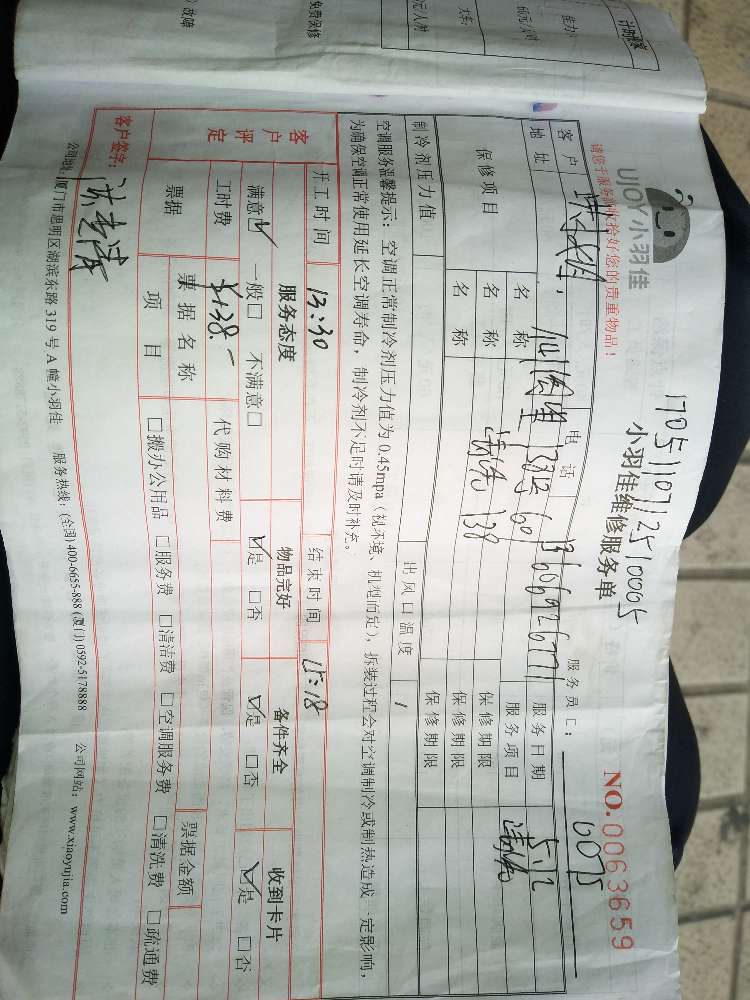 计时标准
故障
免费保修
元/人/时
UJOY小羽佳
请您于服务前收拾好您的贵重物品！
1705110712510005
小羽佳维修服务单
NO.0063659
服务员 C：6075
客户
电话 13606926771
服务日期 5.12
地址
服务项目 清洗
保修项目
名称
保修期限
名称 清洗 138
保修期限
名称
保修期限
制冷剂压力值
出风口温度 /
空调服务温馨提示：空调正常制冷剂压力值为 0.45mpa（视环境、机型而定），拆装过程会对空调制冷或制热造成一定影响，
为确保空调正常使用延长空调寿命，制冷剂不足时请及时补充。
客户评定
开工时间 13:30 结束时间 15:18
服务态度 物品完好 备件齐全 收到卡片
满意☑ 一般□ 不满意□ ☑是 □否 ☑是 □否 ☑是 □否
工时费 ¥138.- 代购材料费
票据 票据名称 票据金额
项目 □搬办公用品 □服务费 □清洁费 □空调服务费 □清洗费 □疏通费
客户签字：
公司地址：厦门市思明区湖滨东路 319 号 A 幢小羽佳 服务热线：(全国) 400-6655-888 (厦门) 0592-5178888 公司网站：www.xiaoyujia.com